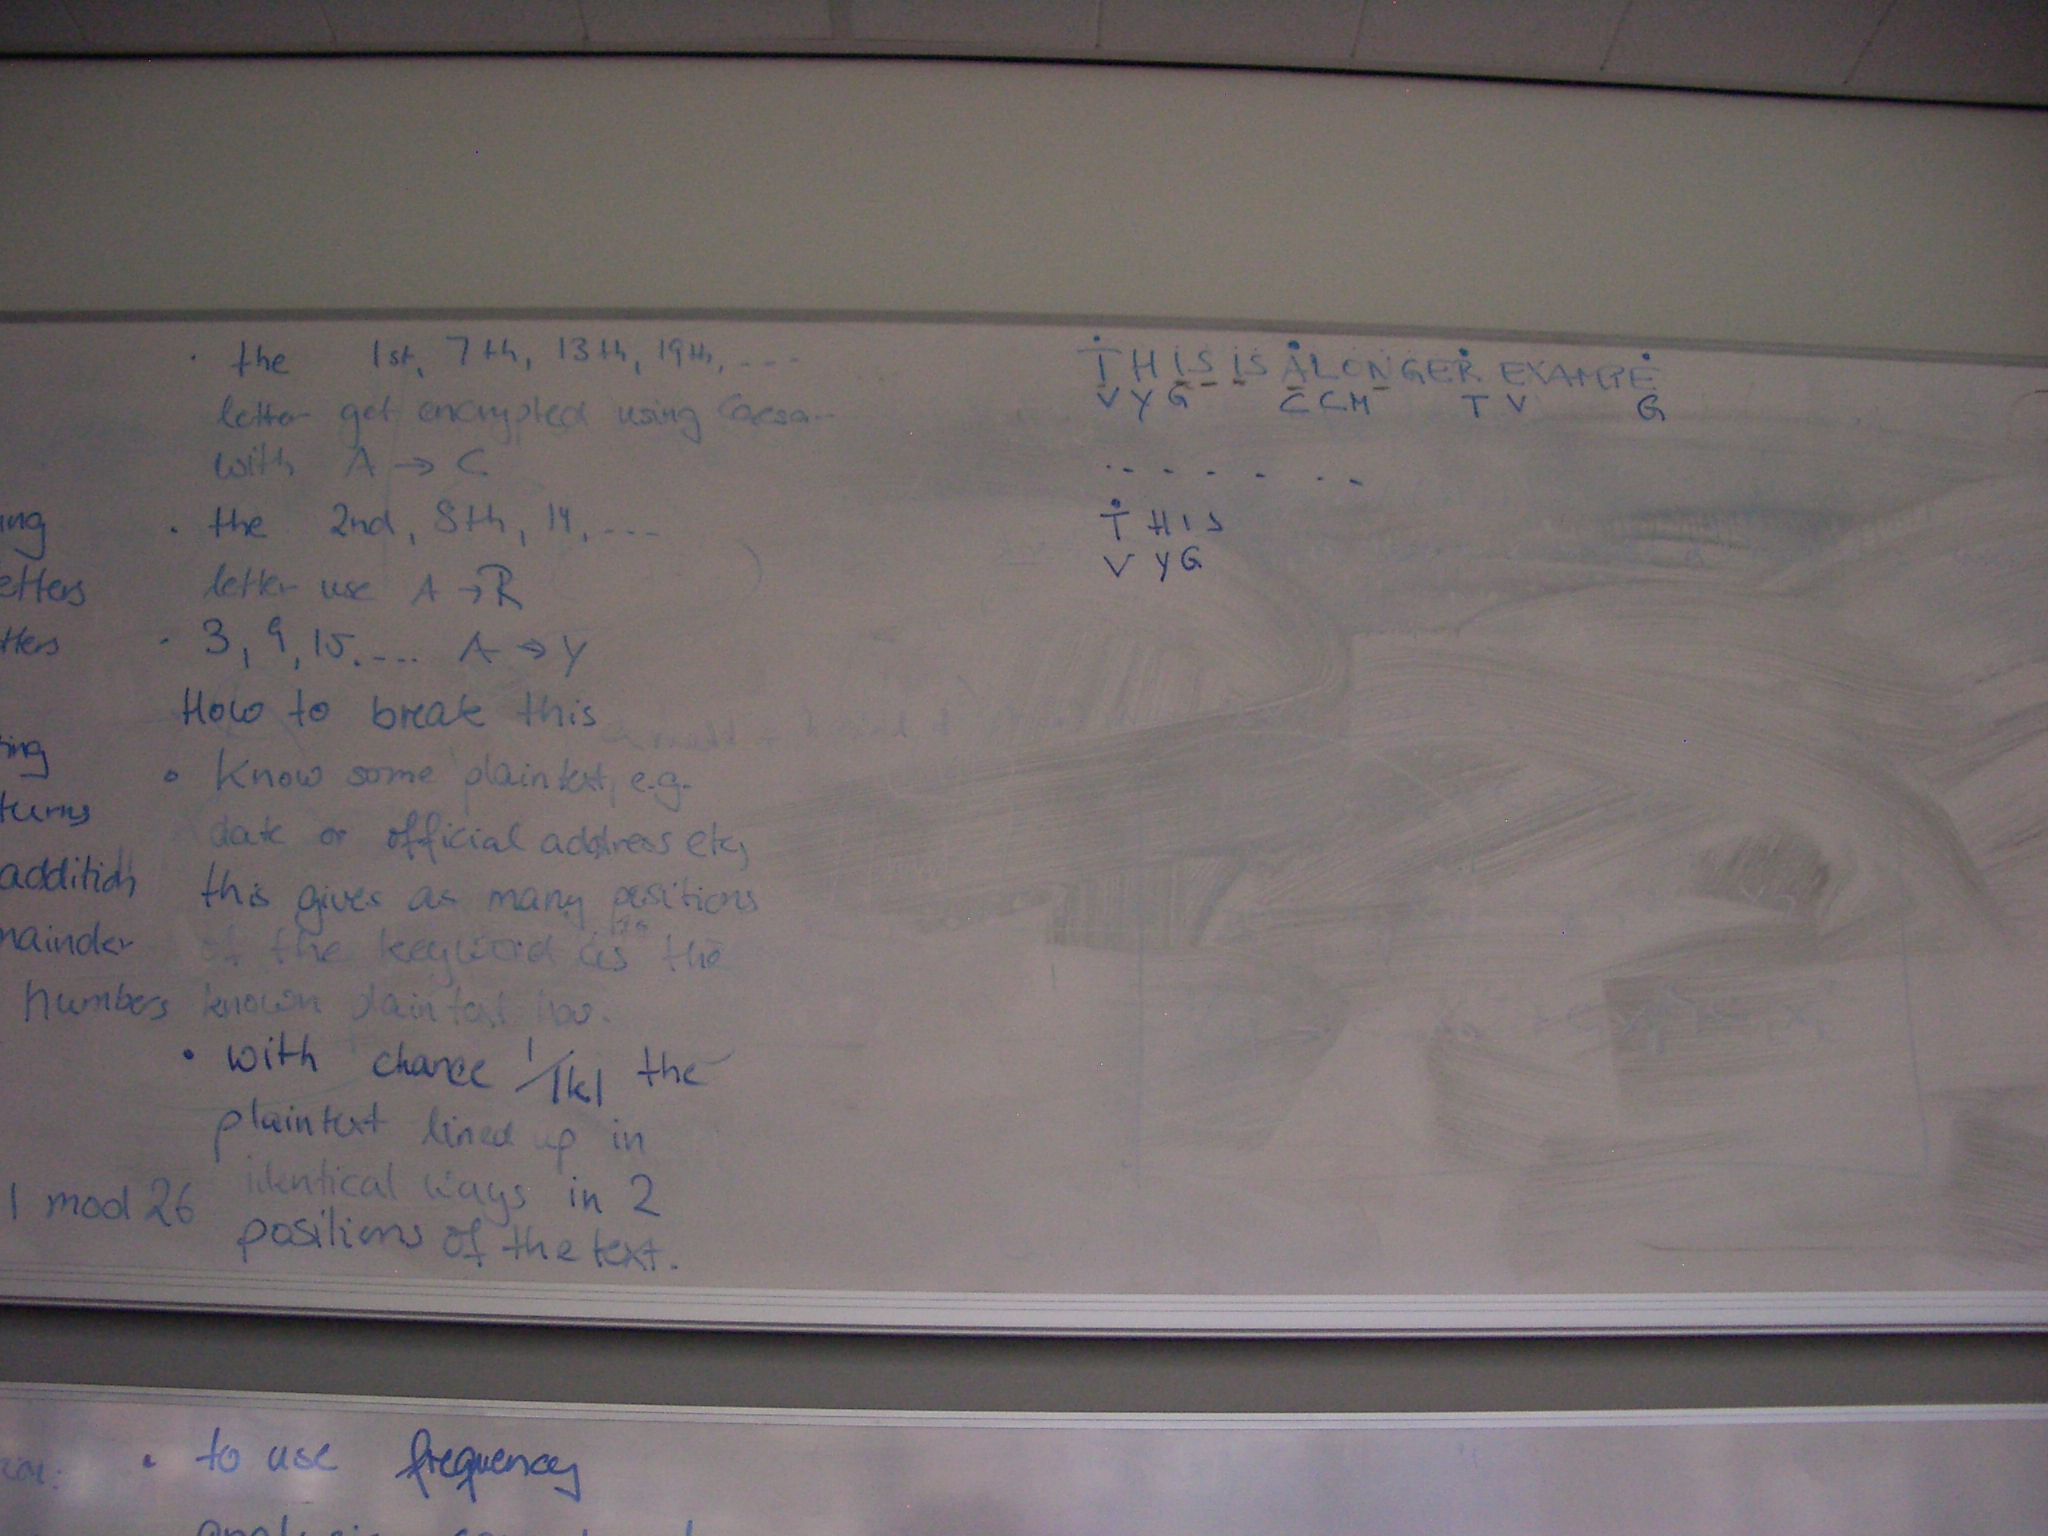 · the 1st, 7th, 13th, 19th, ....
letter get encrypted using Caesar
with A → C
· the 2nd, 8th, 14, ....
letter use A → R
· 3, 9, 15.... A → Y
How to break this
∘ Know some plaintext, e.g.
date or official address etc,
this gives as many positions
of the keyword as the
known plaintext has.
· with chance 1/|k| the
plaintext lined up in
identical ways in 2
positions of the text.
ing
etters
tters
turns
addition
mainder
numbers
1 mod 26
THIS IS A LONGER EXAMPE
VYG CCM TV G
THIS
VYG
· to use frequency